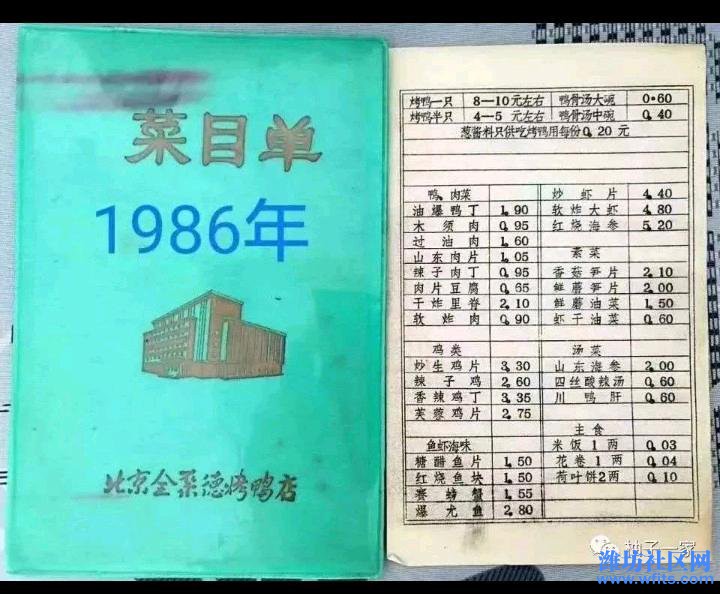 菜目单
1986年
北京全聚德烤鸭店
烤鸭一只 8—10元左右 鸭骨汤大碗 0.60
烤鸭半只 4—5元左右 鸭骨汤中碗 0.40
葱酱料只供吃烤鸭用每份0.20元
鸭、肉菜 炒虾片 4.40
油爆鸭丁 1.90 软炸大虾 4.80
木须肉 0.95 红烧海参 5.20
过油肉 1.60
山东肉片 1.05 素菜
辣子肉丁 0.95 香菇笋片 2.10
肉片豆腐 0.65 鲜蘑笋片 2.00
干炸里脊 2.10 鲜蘑油菜 1.50
软炸肉 0.90 虾干油菜 0.60
鸡类 汤菜
炒生鸡片 3.30 山东海参 2.00
辣子鸡 2.60 四丝酸辣汤 0.60
香辣鸡丁 3.35 川鸭肝 0.60
芙蓉鸡片 2.75
主食
鱼虾海味 米饭1两 0.03
糖醋鱼片 1.50 花卷1两 0.04
红烧鱼块 1.50 荷叶饼2两 0.10
赛螃蟹 1.55
爆尤鱼 2.80
柚子一家
潍坊社区网
www.wfits.com